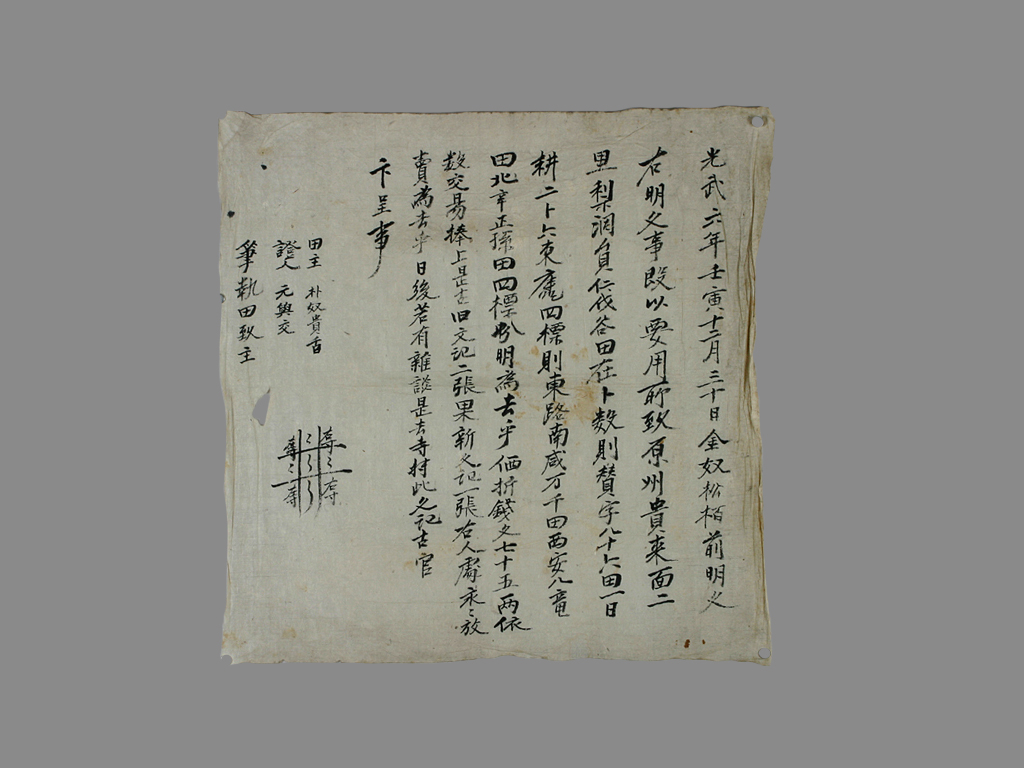 光武六年壬寅十二月三十日金奴松栢前明文
右明文事段以要用所致原州貴來面二
里梨洞員仁伐谷田在卜數則賛字八十六田一日
耕二卜六束庫四標則東路南咸万千田西安八竜
田北辛正孫田四標分明爲去乎価折錢文七十五兩依
數交易捧上是去旧文記二張果新文記一張右人處永〻放
賣爲去乎日後若有雜談是去等持此文記告官
卞呈事
田主 朴奴貴吉
證人 元與交
筆執田致主